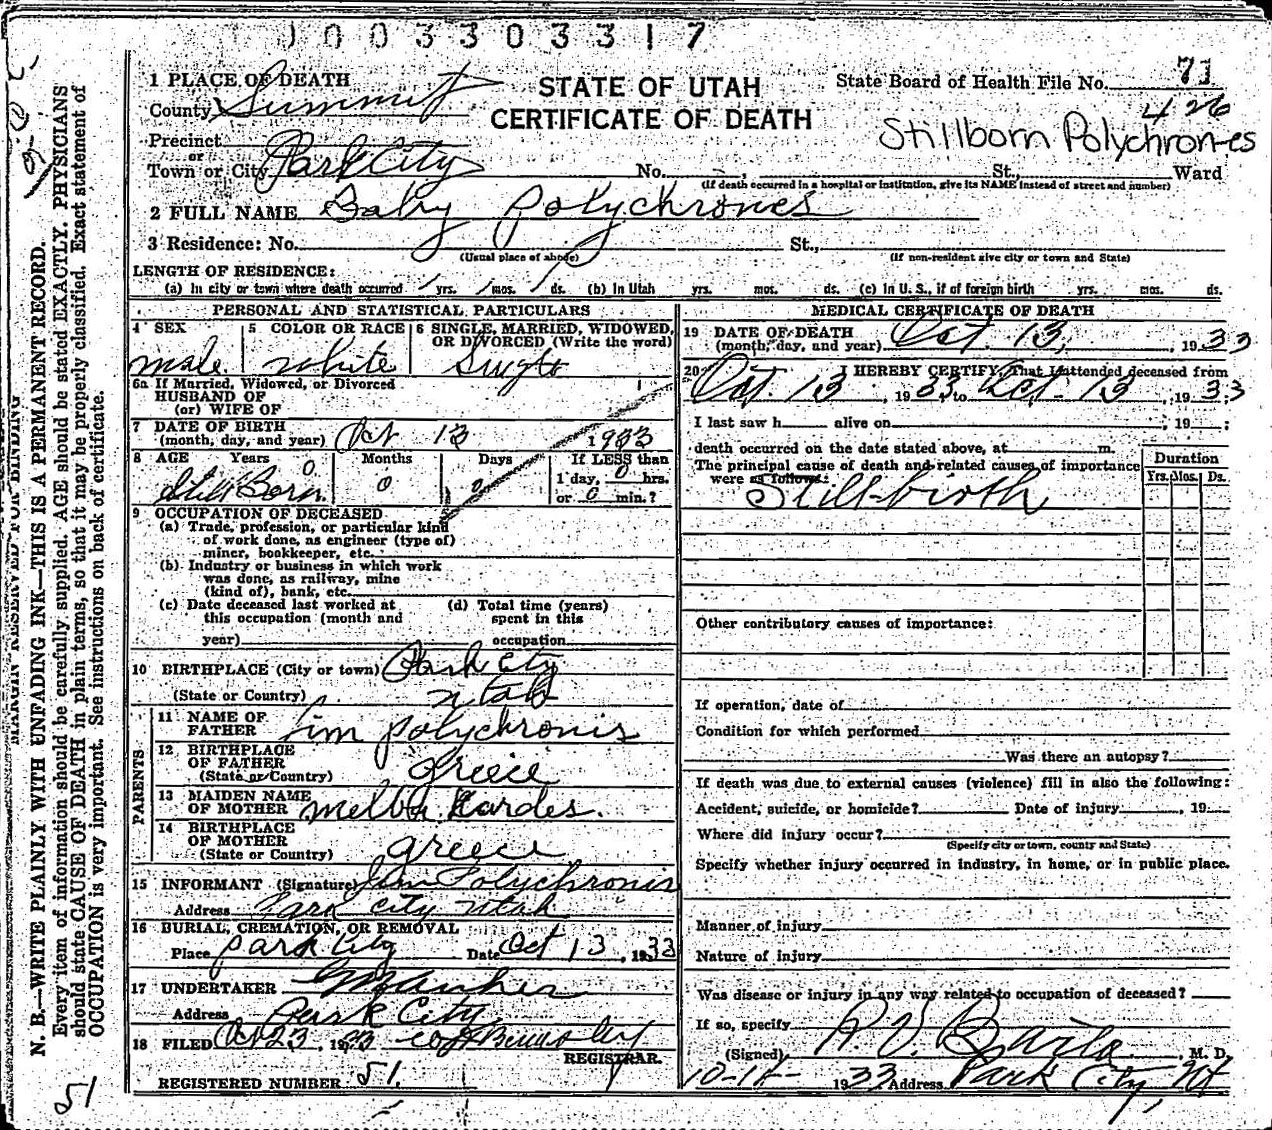 1003303317
1 PLACE OF DEATH
County Summit
STATE OF UTAH
CERTIFICATE OF DEATH
State Board of Health File No. 71
426
Stillborn Polychrones
Precinct
or
Town or City Park City No. , St., Ward
(If death occurred in a hospital or institution, give its NAME instead of street and number)
2 FULL NAME Baby Polychrones
3 Residence: No. St.,
(Usual place of abode) (If non-resident give city or town and State)
LENGTH OF RESIDENCE:
(a) In city or town where death occurred yrs. mos. ds. (b) In Utah yrs. mos. ds. (c) In U. S., if of foreign birth yrs. mos. ds.
PERSONAL AND STATISTICAL PARTICULARS
4 SEX
male
5 COLOR OR RACE
white
6 SINGLE, MARRIED, WIDOWED,
OR DIVORCED (Write the word)
Single
6a If Married, Widowed, or Divorced
HUSBAND OF
(or) WIFE OF
7 DATE OF BIRTH
(month, day, and year) Oct 13 1933
8 AGE Years Months Days If LESS than
0 0 0 1 day, 0 hrs.
Still Born or 0 min.?
9 OCCUPATION OF DECEASED
(a) Trade, profession, or particular kind
of work done, as engineer (type of)
miner, bookkeeper, etc.
(b) Industry or business in which work
was done, as railway, mine
(kind of), bank, etc.
(c) Date deceased last worked at
this occupation (month and
year)
(d) Total time (years)
spent in this
occupation
10 BIRTHPLACE (City or town) Park City
(State or Country) Utah
PARENTS
11 NAME OF
FATHER Jim Polychronis
12 BIRTHPLACE
OF FATHER
(State or Country) Greece
13 MAIDEN NAME
OF MOTHER Melba Kardes.
14 BIRTHPLACE
OF MOTHER
(State or Country) Greece
15 INFORMANT (Signature) Jim Polychronis
Address Park City Utah
16 BURIAL, CREMATION, OR REMOVAL
Place Park City Date Oct 13, 1933
17 UNDERTAKER
Address Park City
18 FILED Oct 23, 1933
REGISTRAR.
REGISTERED NUMBER 51.
MEDICAL CERTIFICATE OF DEATH
19 DATE OF DEATH
(month, day, and year) Oct. 13, , 1933
20 I HEREBY CERTIFY, That I attended deceased from
Oct. 13, 1933, to Oct. 13, 1933;
I last saw h alive on , 19 ;
death occurred on the date stated above, at m.
The principal cause of death and related causes of importance
were as follows:
Still-birth
Duration
Yrs. Mos. Ds.
Other contributory causes of importance:
If operation, date of
Condition for which performed
Was there an autopsy?
If death was due to external causes (violence) fill in also the following:
Accident, suicide, or homicide? Date of injury , 19
Where did injury occur?
(Specify city or town, county and State)
Specify whether injury occurred in industry, in home, or in public place.
Manner of injury
Nature of injury
Was disease or injury in any way related to occupation of deceased?
If so, specify
(Signed) , M. D.
1933 Address Park City, Ut
MARGIN RESERVED FOR BINDING
N. B.—WRITE PLAINLY WITH UNFADING INK—THIS IS A PERMANENT RECORD.
Every item of information should be carefully supplied. AGE should be stated EXACTLY. PHYSICIANS
should state CAUSE OF DEATH in plain terms, so that it may be properly classified. Exact statement of
OCCUPATION is very important. See instructions on back of certificate.
51